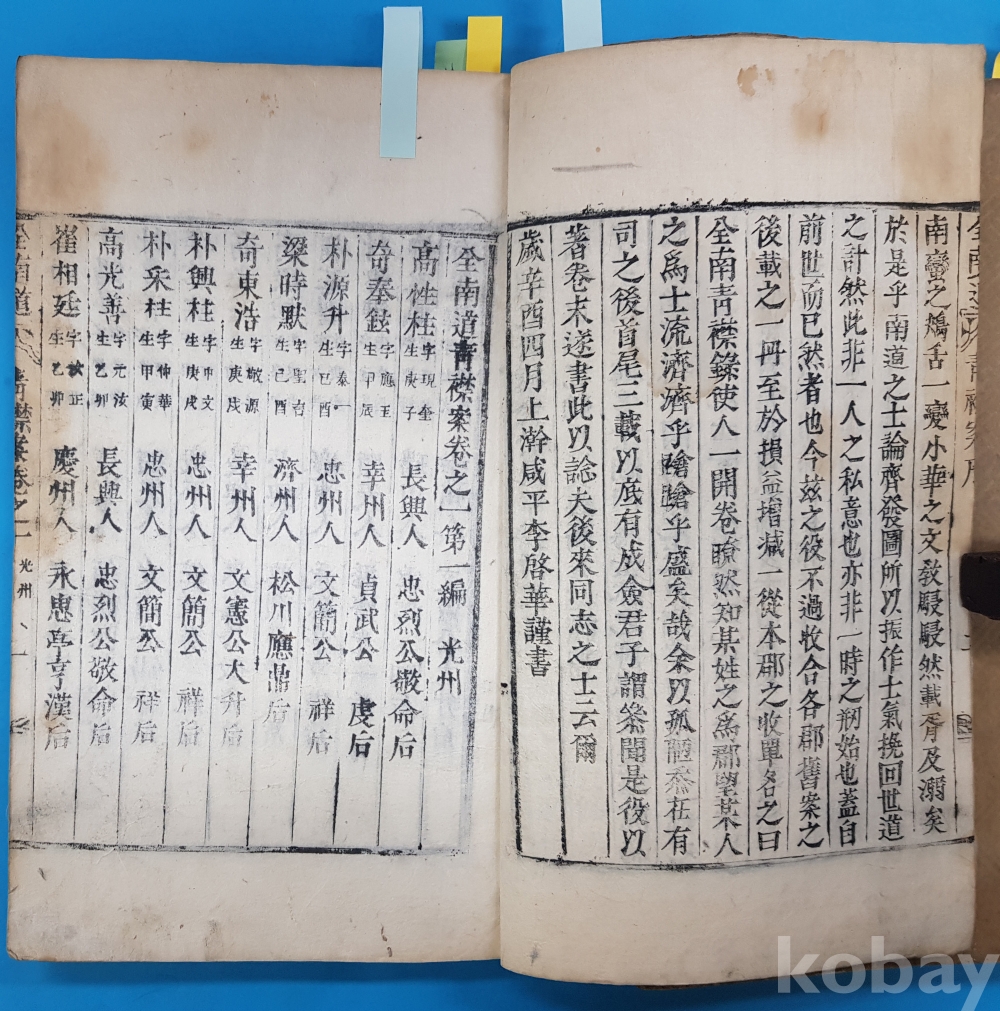 南蠻之鴂舌一變小華之文敎駸駸然載胥及溺矣
於是乎南道之士論齊發圖所以振作士氣挽回世道
之計然此非一人之私意也亦非一時之刱始也蓋自
前世而已然者也今玆之役不過收合各郡舊案之
後載之一冊至於損益增减一從本郡之收單名之曰
全南靑襟錄使人一開卷瞭然知某姓之爲郡望某人
之爲士流濟濟乎蹌蹌乎盛矣哉余以孤陋忝在有
司之後首尾三載以底有成僉君子謂余聞是役以
著卷末遂書此以諗夫後來同志之士云爾
歲辛酉四月上澣咸平李啓華謹書
全南道靑襟案卷之一 第一編 光州
高性柱 字現奎 生庚子 長興人 忠烈公敬命后
奇奉鉉 字應玉 生甲辰 幸州人 貞武公 虔后
朴源升 字泰一 生己酉 忠州人 文簡公 祥后
梁時默 字聖台 生己酉 濟州人 松川應鼎后
奇東浩 字敬源 生庚戌 幸州人 文憲公大升后
朴興柱 字中文 生庚戌 忠州人 文簡公 祥后
朴采柱 字仲華 生甲寅 忠州人 文簡公 祥后
高光善 字元汝 生乙卯 長興人 忠烈公敬命后
崔相廷 生乙卯 慶州人 永思亭亨漢后
全南道 靑襟案卷之一 光州 一
kobay